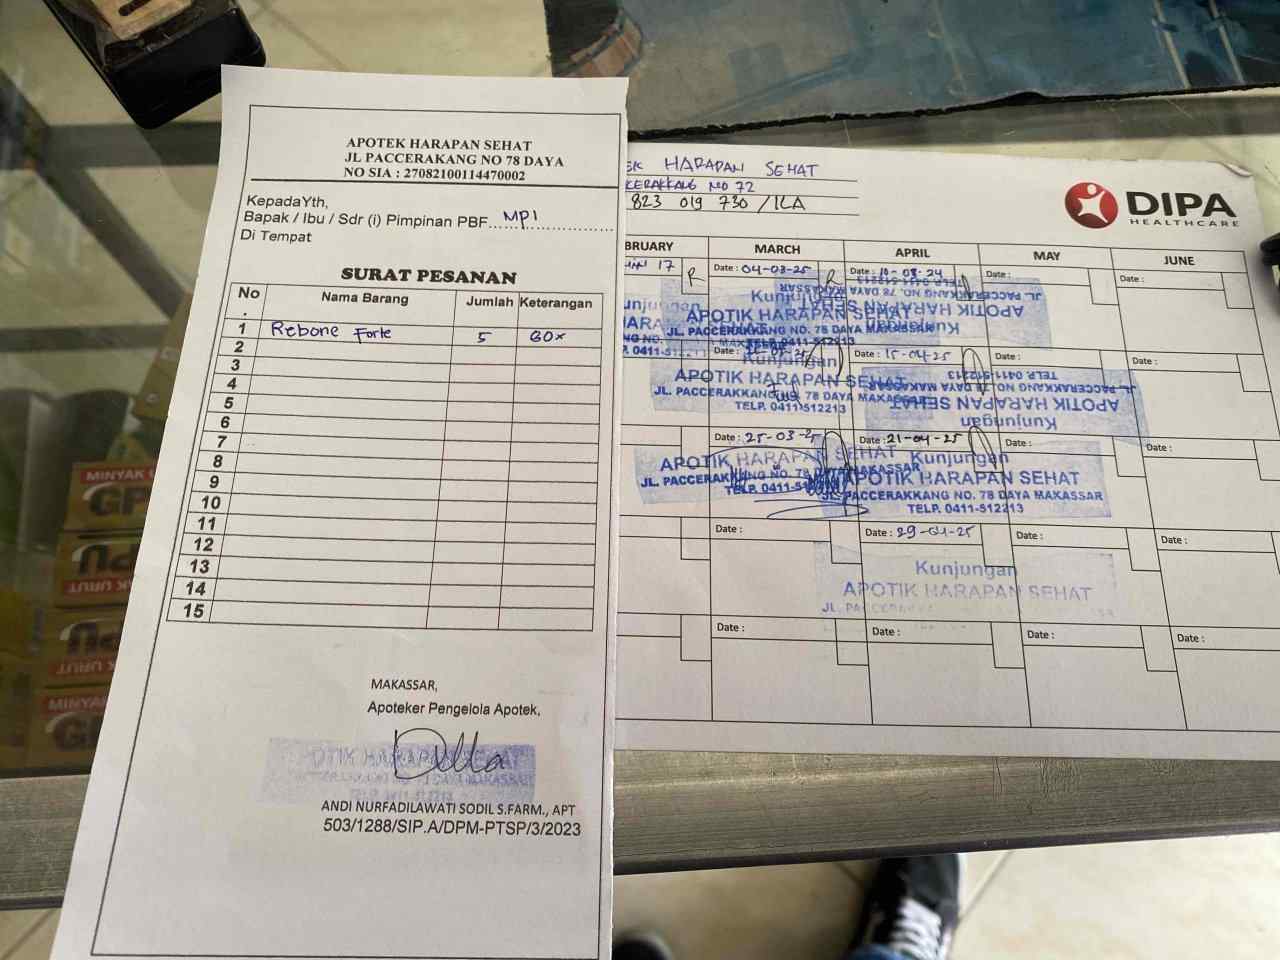 APOTEK HARAPAN SEHAT
JL PACCERAKANG NO 78 DAYA
NO SIA : 27082100114470002
KepadaYth,
Bapak / Ibu / Sdr (i) Pimpinan PBF...MPI
Di Tempat
SURAT PESANAN
No. Nama Barang Jumlah Keterangan
1 Rebone Forte 5 BOX
2
3
4
5
6
7
8
9
10
11
12
13
14
15
MAKASSAR,
Apoteker Pengelola Apotek,
ANDI NURFADILAWATI SODIL S.FARM., APT
503/1288/SIP.A/DPM-PTSP/3/2023
HARAPAN SEHAT
KERAKKANG NO 72
823 019 730 / ILA
DIPA
HEALTHCARE
BRUARY MARCH APRIL MAY JUNE
17 R Date : 04-03-25 R Date : Date : Date :
Kunjungan
APOTIK HARAPAN SEHAT
JL. PACCERAKKANG NO. 78 DAYA MAKASSAR
TELP. 0411-512213
Date : Date : 15-04-25 Date : Date :
Kunjungan
APOTIK HARAPAN SEHAT
JL. PACCERAKKANG NO. 78 DAYA MAKASSAR
TELP. 0411-512213
Kunjungan
APOTIK HARAPAN SEHAT
JL. PACCERAKKANG NO. 78 DAYA MAKASSAR
TELP. 0411-512213
Date : 25-03-25 Date : 21-04-25 Date : Date :
APOTIK HARAPAN SEHAT
JL. PACCERAKKANG NO. 78 DAYA MAKASSAR
TELP. 0411-512213
Kunjungan
APOTIK HARAPAN SEHAT
JL. PACCERAKKANG NO. 78 DAYA MAKASSAR
TELP. 0411-512213
Date : Date : 29-04-25 Date : Date :
Kunjungan
APOTIK HARAPAN SEHAT
Date : Date : Date : Date :
MINYAK
GP